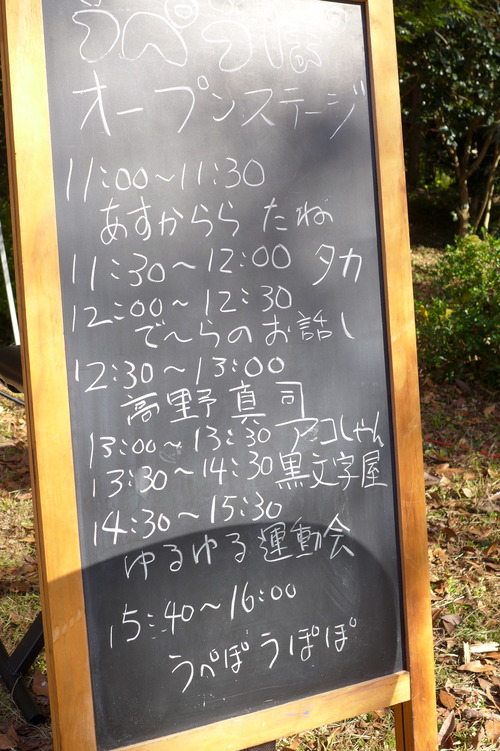 うぺうぽ
オープンステージ
11:00～11:30
あすからら たね
11:30～12:00 タカ
12:00～12:30
で～らのお話し
12:30～13:00
高野 真司
13:00～13:30 アコしゃん
13:30～14:30 黒文字屋
14:30～15:30
ゆるゆる運動会
15:40～16:00
うぺぽうぽぽ